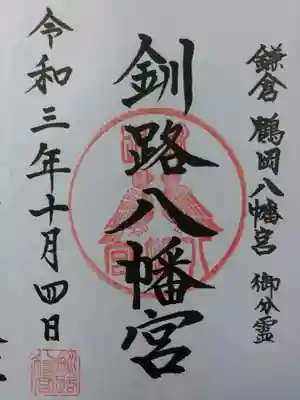 鎌倉 鶴岡八幡宮 御分霊
釧路八幡宮
令和三年十月四日